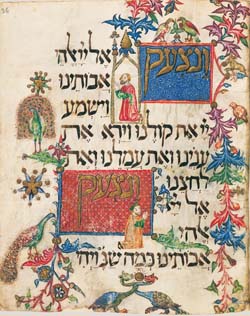 ונצעק
אל יי אלהי
אבותינו
וישמע
יי את קולנו וירא את
ענינו ואת עמלנו ואת
לחצנו
ונצעק
אל יי
אלהי
אבותינו כמה שנ ויהי